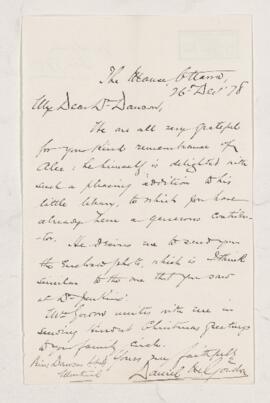 The Manse, Ottawa,
26 Dec' 78
My Dear Dr Dawson,
We are all very grateful
for your kind remembrance of
Alec: he himself is delighted with
such a pleasing addition to his
little library, to which you have
already been a generous contribu-
tor.
He desires me to send you
the enclosed photo, which is I think
similar to the one that you saw
at Dr Jenkins'.
Mrs Gordon unites with me in
sending kindest Christmas greetings
to your family circle.
Yours very faithfully
Daniel M. Gordon
Dawson
Montreal